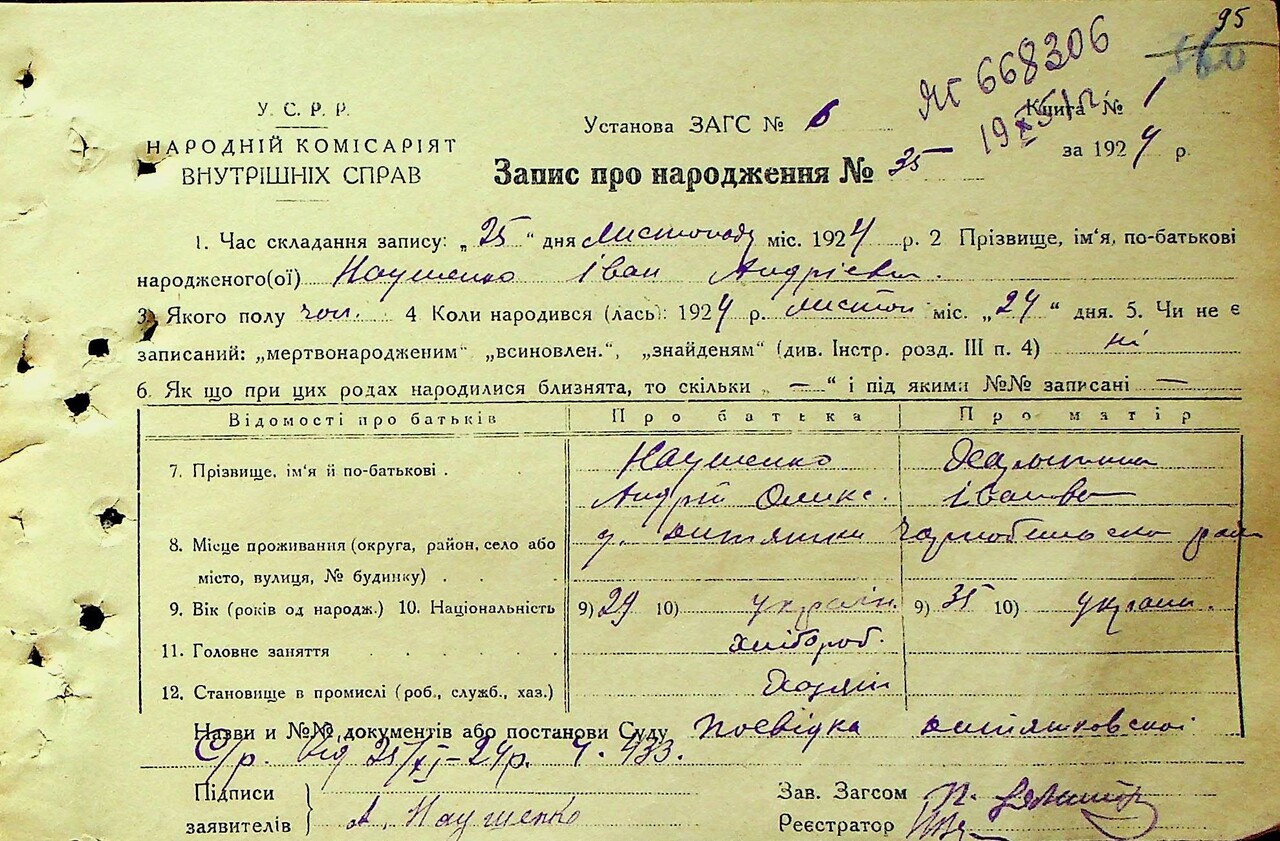 95
560
ЯГ 668306
19 X 51 г.
У. С. Р. Р.
НАРОДНІЙ КОМІСАРІЯТ
ВНУТРІШНІХ СПРАВ
Установа ЗАГС № 6
Книга № 1
за 1924 р.
Запис про народження № 35
1. Час складання запису: „25“ дня Листопаду міс. 1924 р. 2 Прізвище, ім'я, по-батькові
народженого(ої) Наушенко Іван Андрієви
3) Якого полу чол. 4 Коли народився (лась): 1924 р. листоп міс. „24“ дня. 5. Чи не є
записаний: „мертвонародженим“ „всиновлен.“, „знайденям“ (див. Інстр. розд. III п. 4) ні
6. Як що при цих родах народилися близнята, то скільки „—“ і під якими №№ записані —
Відомості про батьків Про батька Про матір
7. Прізвище, ім'я й по-батькові . Наушенко
Андрій Олекс. Іванова
8. Місце проживання (округа, район, село або
місто, вулиця, № будинку) . . .
9. Вік (років од народж.) 10. Національність 9) 29 10) україн. 9) 35 10) україн.
11. Головне заняття . . . . . хлібороб.
12. Становище в промислі (роб., служб., хаз.) Хазяїн
Назви и №№ документів або постанови Суду Посвідка
С/р. від 25/XI-24р. ч. 433.
Підписи
заявителів А. Наушенко
Зав. Загсом
Реєстратор